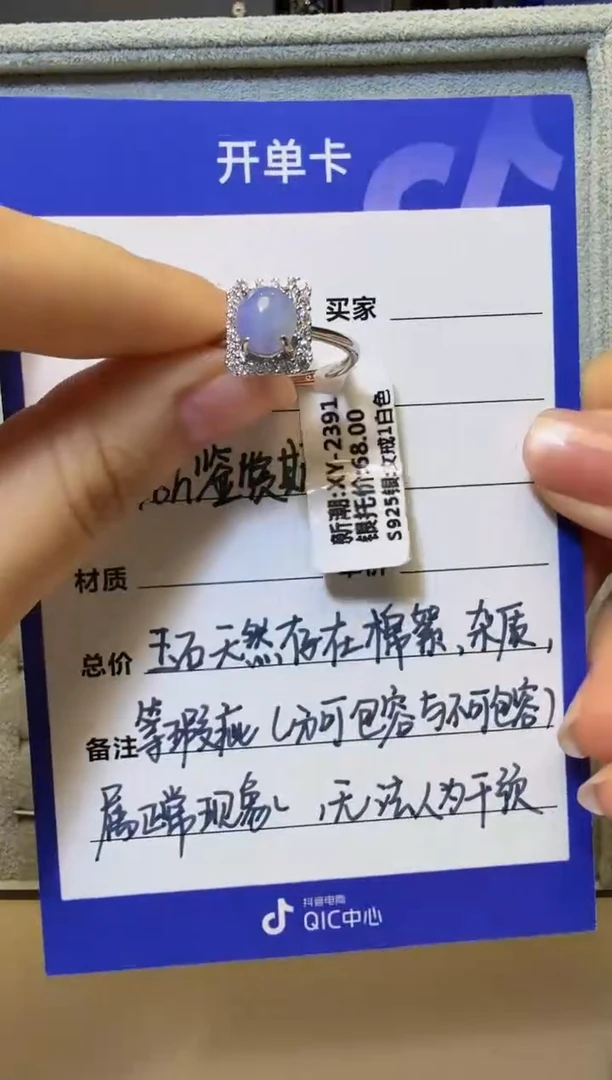 开单卡
买家
新潮:XY-2391
银托价:68.00
S925银:女戒1白色
材质
总价 玉石天然存在棉絮、杂质,
备注 等瑕疵(分可包容与不可包容)
属正常现象,无法人为干预
抖音电商
QIC中心